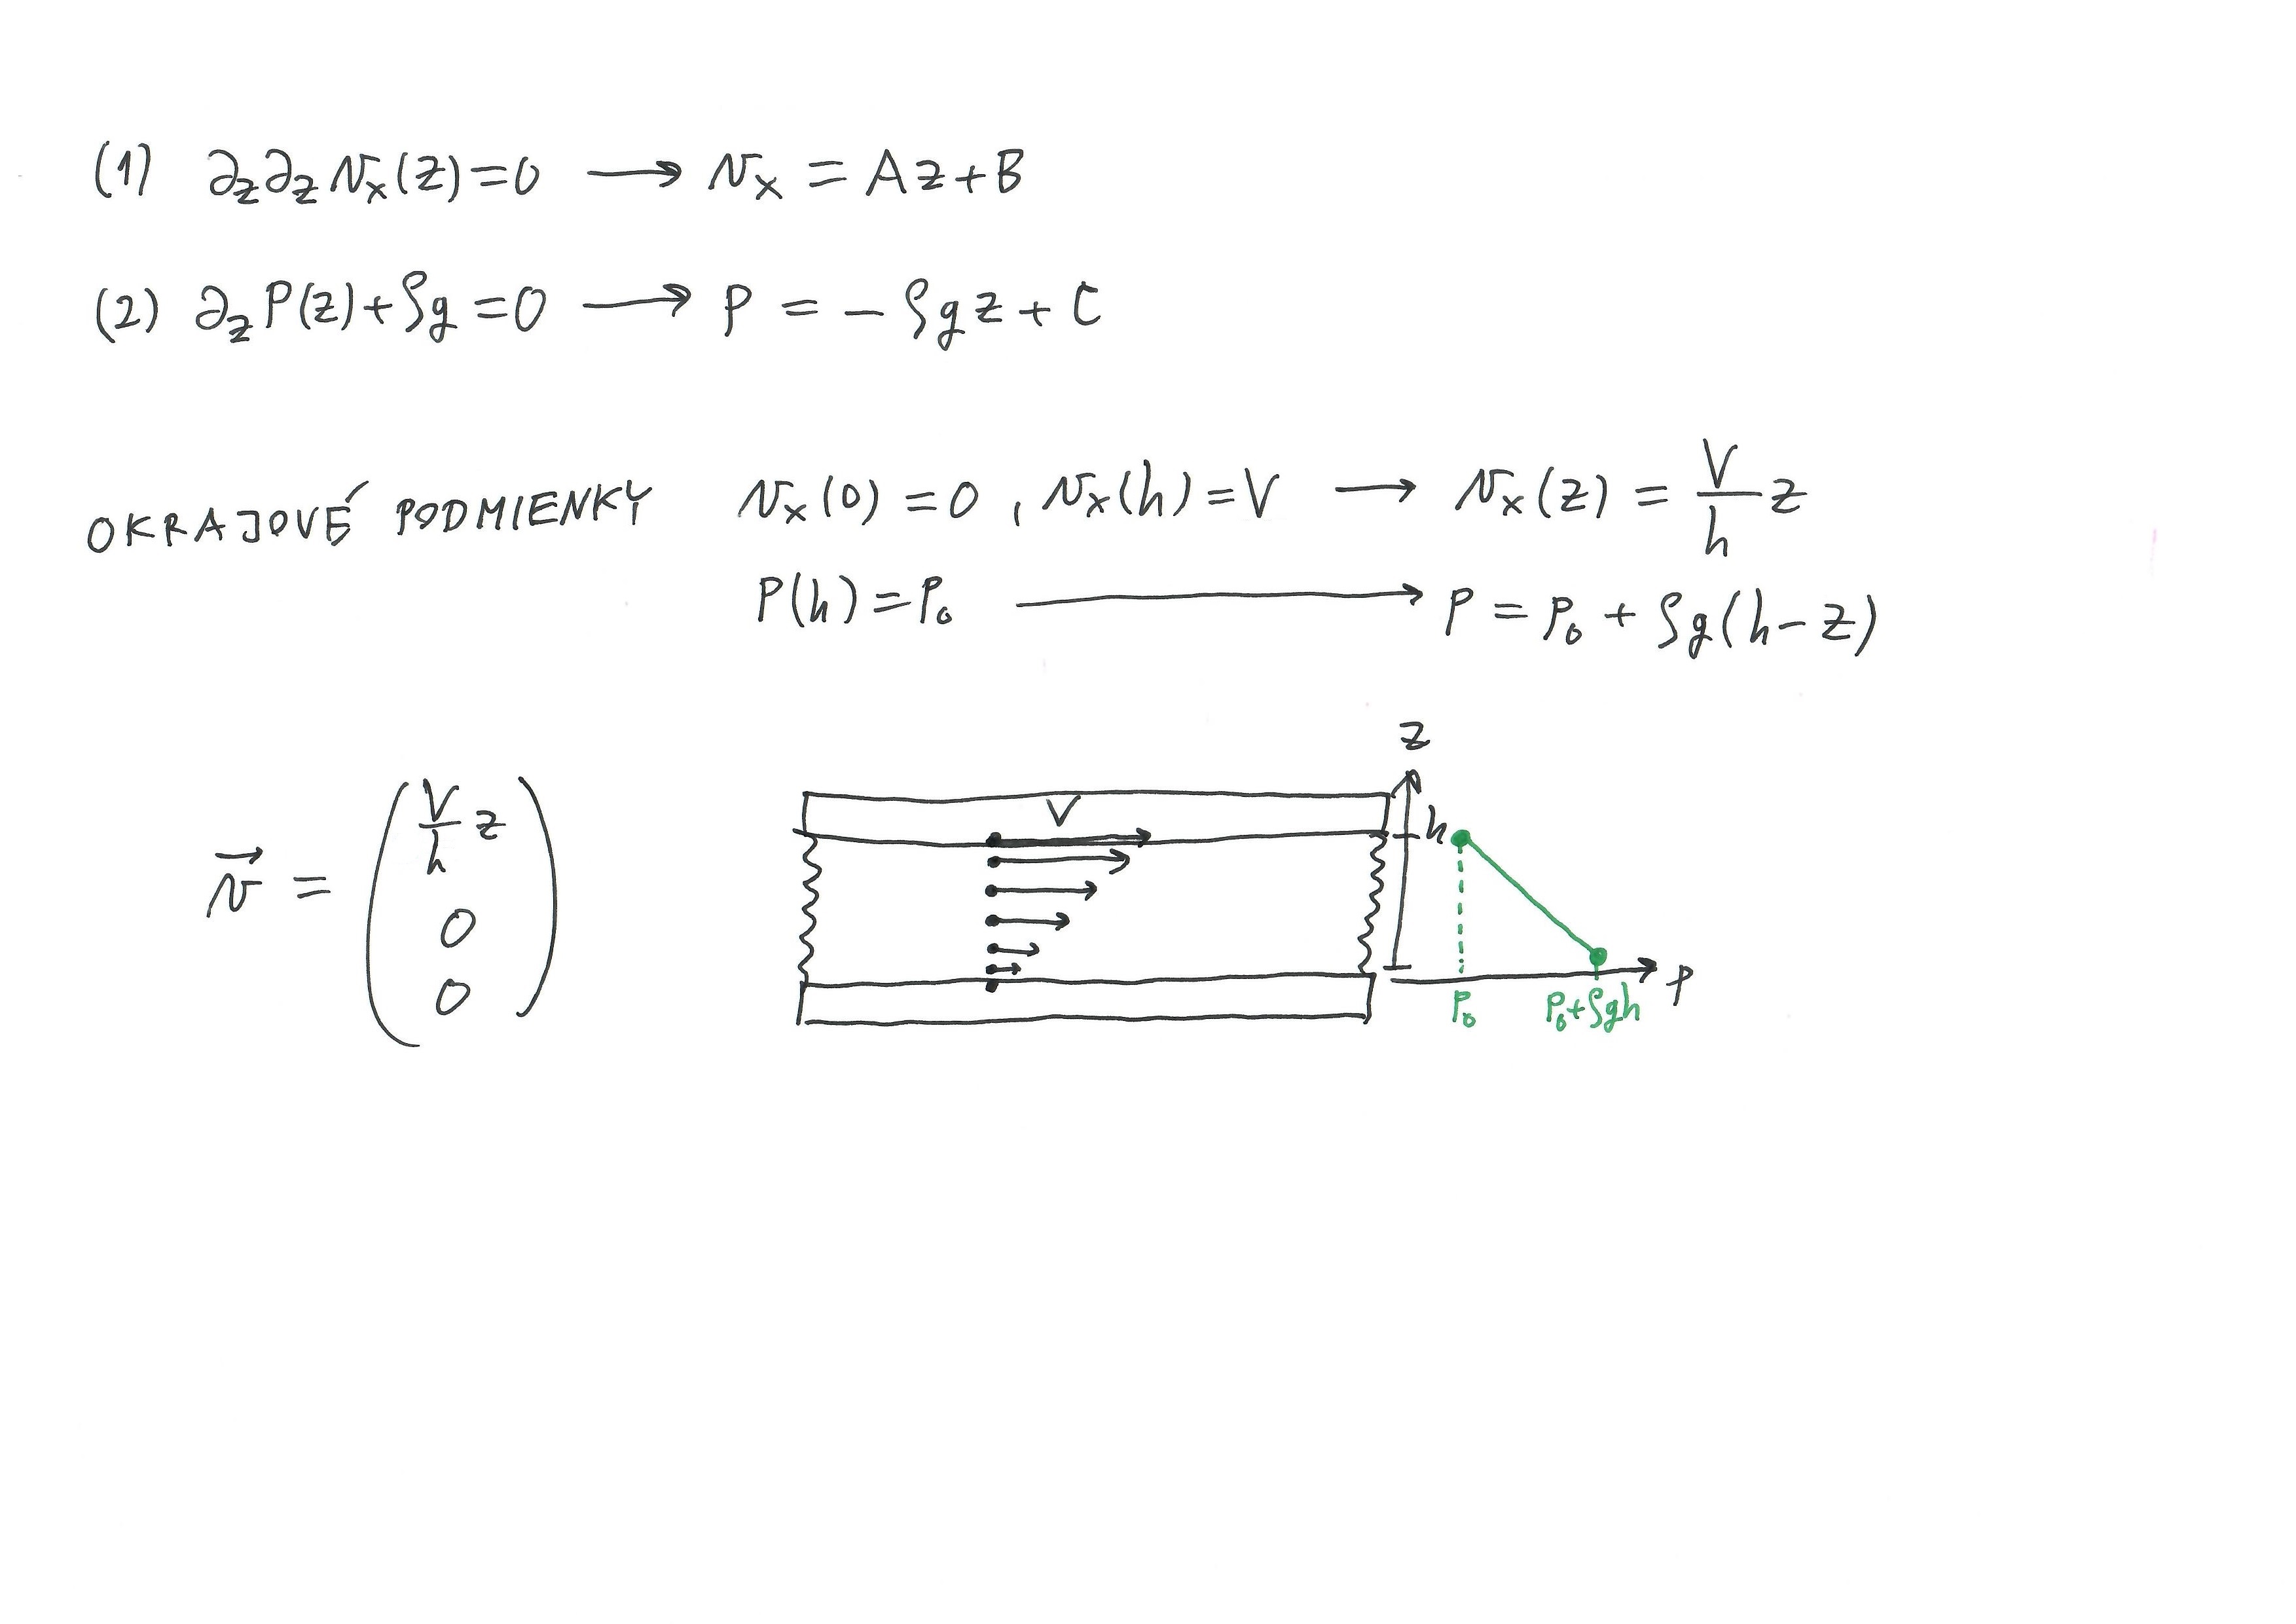 (1) ∂z∂z vx(z)=0 → vx = Az+B
(2) ∂z p(z)+ρg=0 → p = -ρgz+C
OKRAJOVÉ PODMIENKY vx(0)=0, vx(h)=V → vx(z)=V/h z
p(h)=p0 → p=p0+ρg(h-z)
z
V
h
v⃗ = (V/h z
0
0)
p
p0
p0+ρgh